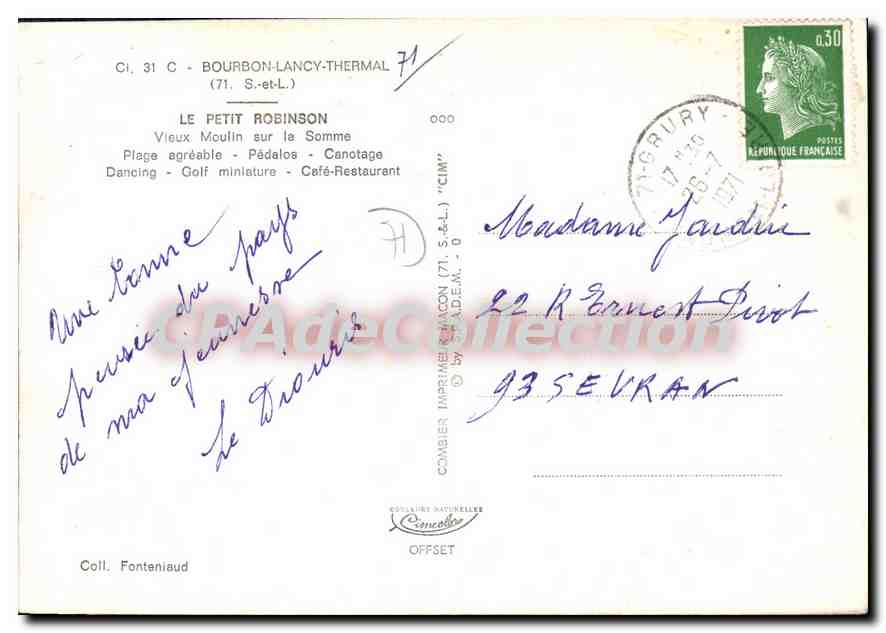 Ci. 31 C - BOURBON-LANCY-THERMAL
(71. S.-et-L.)
71
LE PETIT ROBINSON
Vieux Moulin sur la Somme
Plage agréable - Pédalos - Canotage
Dancing - Golf miniature - Café-Restaurant
Une bonne
pensée du pays
de ma jeunesse
Le
Coll. Fonteniaud
000
71
COMBIER IMPRIMEUR MACON (71. S.-&-L.) "CIM"
© by S.P.A.D.E.M. - 0
COULEURS NATURELLES
Cimcolor
OFFSET
0,30
POSTES
RÉPUBLIQUE FRANÇAISE
71-GRURY
17 H30
26-7
1971
Madame Jardin
22 R Ernest Pivot
93 SEVRAN
CPAdeCollection.com